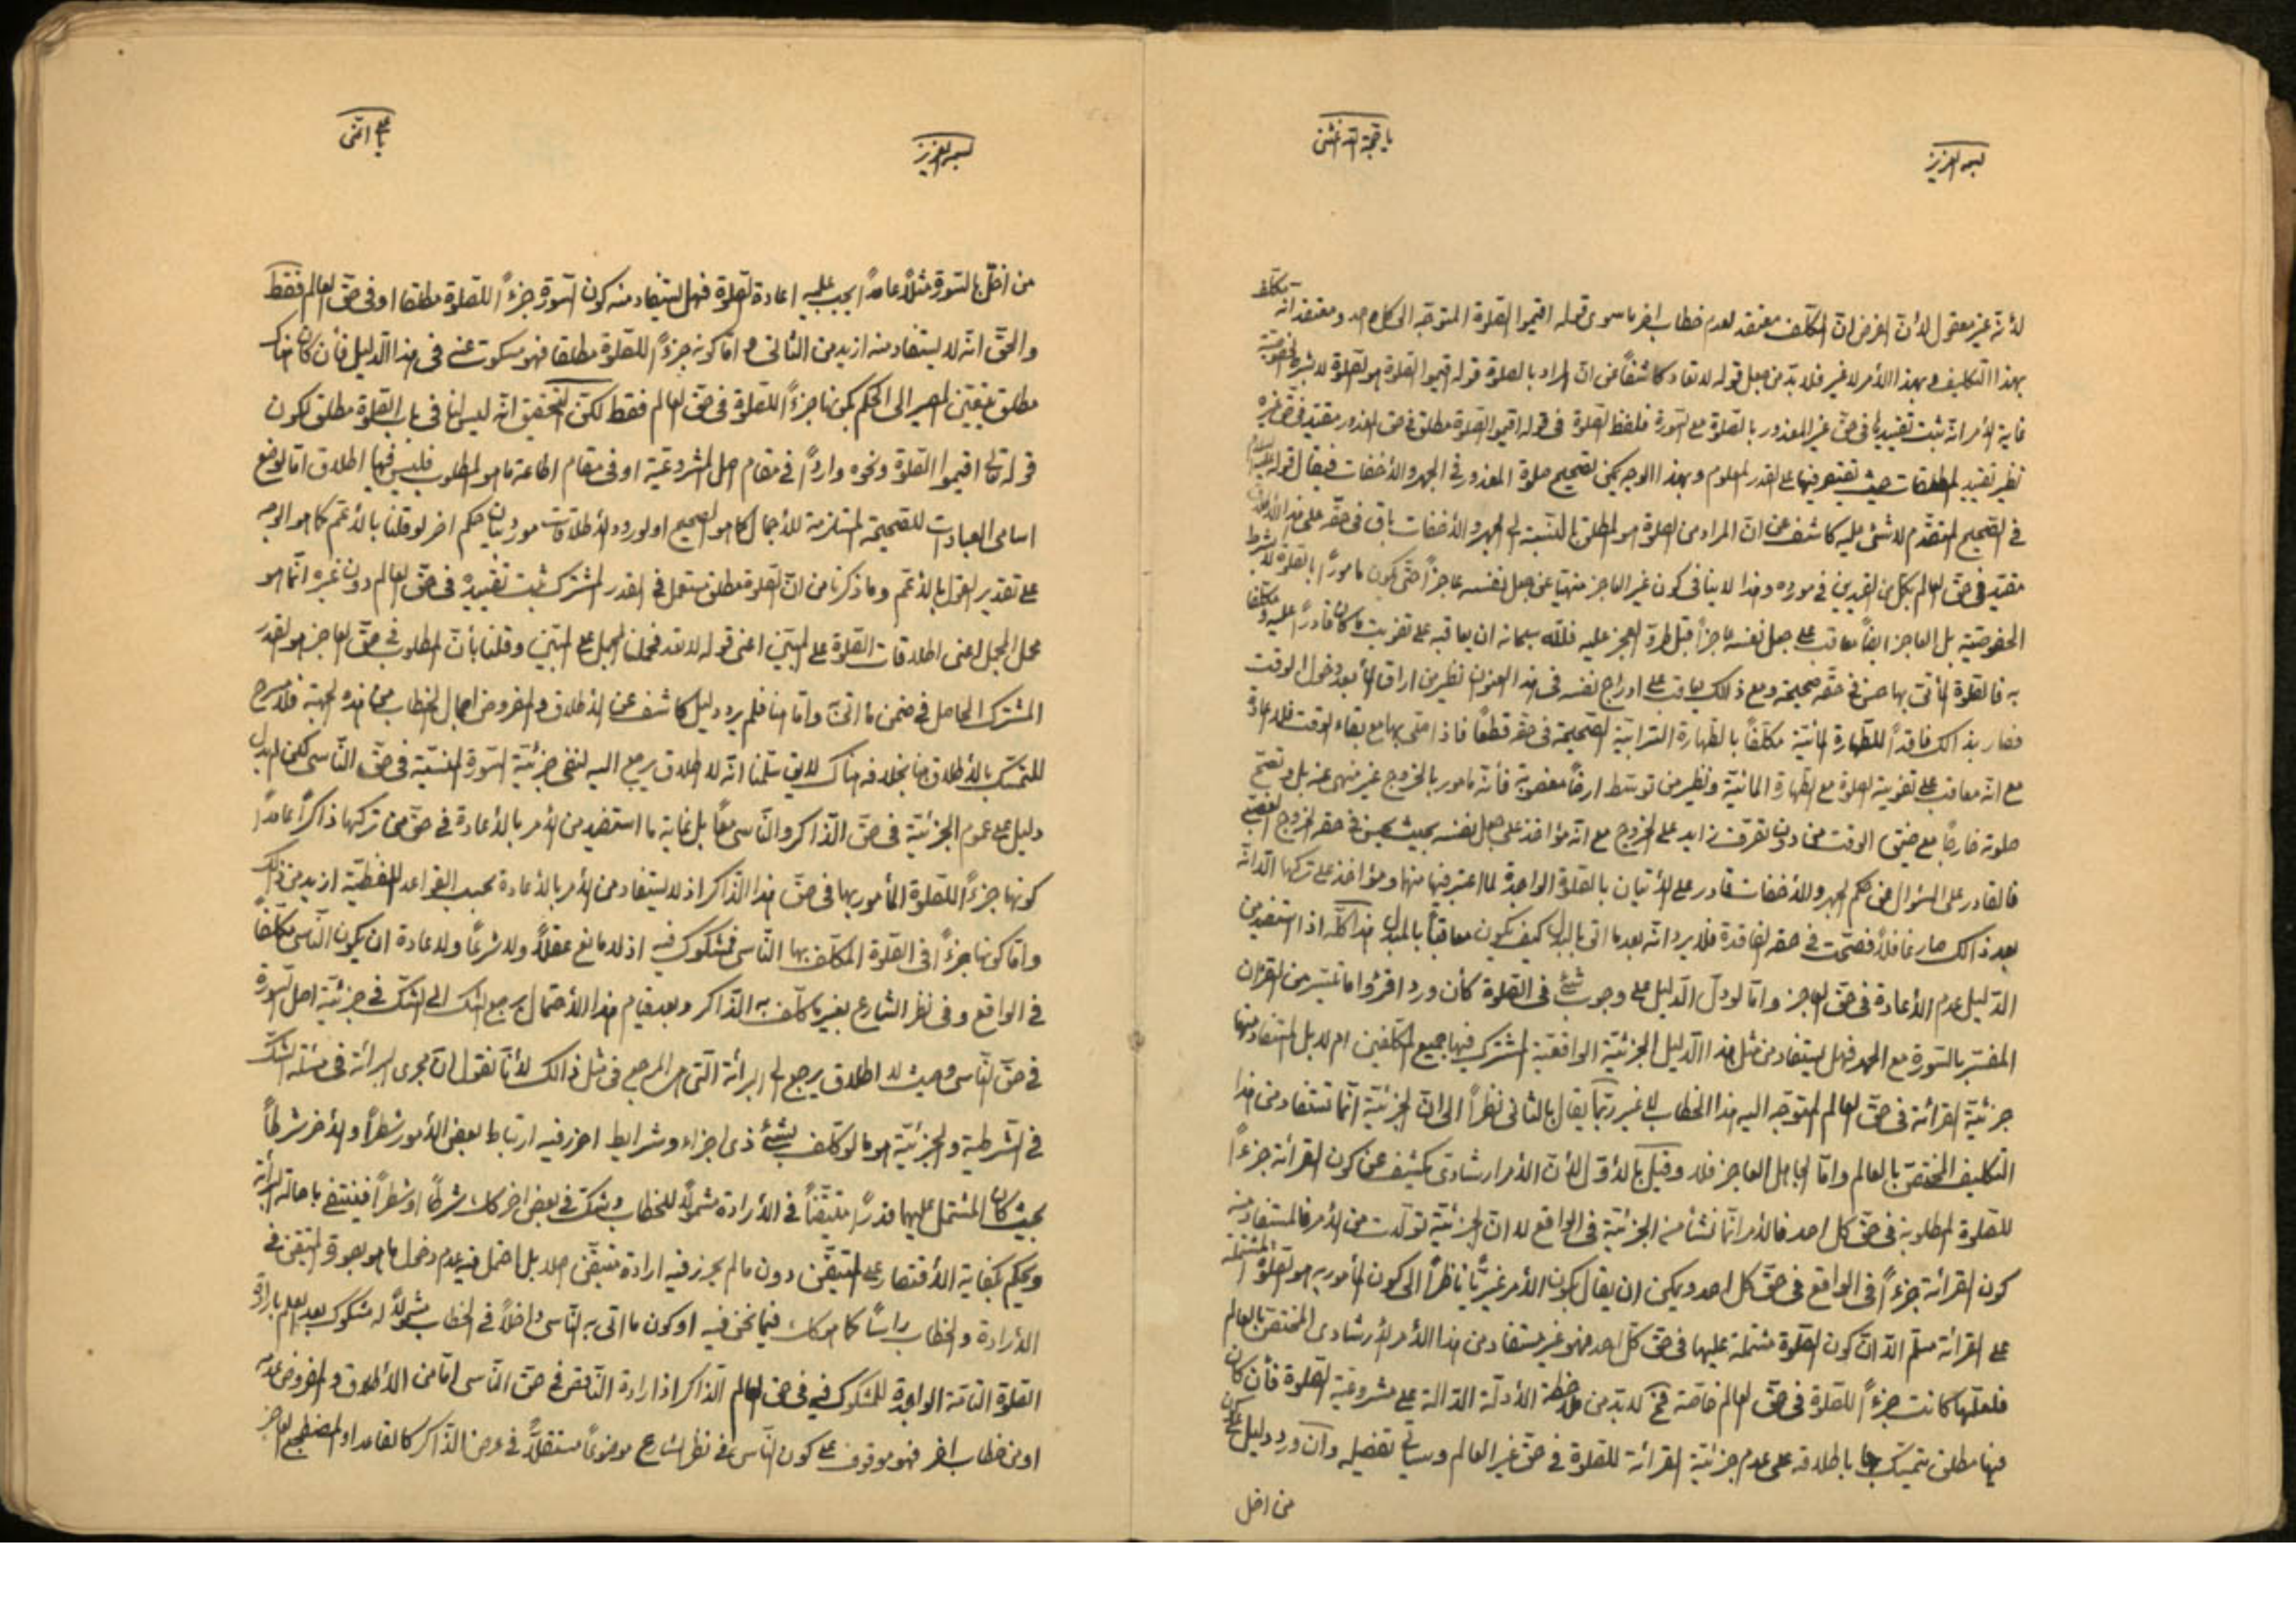 بسمه العزيز
يا حجة الله اغثنى
لأنّه غير معقول لأنّ الفرض انّ المكلّف معتقد لعدم خطاب اخر ما سوى قوله اقيموا الصّلوة المتوجّه الى كل احد و معتقد انّه مكلّف
بهذا التكليف و بهذا الأمر لا غير فلا بدّ من جعل قوله لا تعاد كاشفاً عن انّ المراد بالصلوة قوله اقيموا الصّلوة هو الصّلوة لا بشرط الخصوصيّة
غاية الأمر انّه ثبت تقييدها فى حقّ غير المعذور بالصلوة مع السّورة فلفظ الصلوة فى قوله اقيموا الصّلوة مطلق فى حق المعذور مقيّد فى حقّ غيره
نظير تقييد المطلقات حيث يقتصر فيها على القدر المعلوم و بهذا الوجه يمكن تصحيح صلوة المعذور فى الجهر والأخفات فيقال قوله عليه السلام
فى الصّحيح المتقدّم لا شئ عليه كاشف عن انّ المراد من الصلوة هو المطلق بالنّسبة الى الجهر و الأخفات باق فى حقّه على هذا الأطلاق
مقيّد فى حقّ العالم بكل من القيدين فى مورده و هذا لا ينافى كون غير العاجز منهيّا عن جعل نفسه عاجزاً حتّى يكون مأموراً بالصلوة لا بشرط
الخصوصيّة بل العاجز ايضاً معاقب على جعل نفسه عاجزاً قبل طروّ العجز عليه فللّه سبحانه ان يعاقبه على تفويت ما كان قادراً عليه و مكلّفا
به فالصّلوة المأتىّ بها حين فى حقّه صحيحة و مع ذالك يعاقب على ادراج نفسه فى هذا العنوان نظير من اراق الماء بعد دخول الوقت
فصار بذالك فاقداً للطّهارة المائيّة مكلّفاً بالطّهارة الترابيّة الصّحيحة فى حقّه قطعاً فاذا صلّى بها مع بقاء الوقت فلا اعادة
مع انّه معاقب على تفويته الصلوة مع الطّهارة المائيّة و نظير من توسّط ارضاً مغصوبة فأنّه مأمور بالخروج غير منهى عنه بل و تصحّ
صلوته خارجاً مع ضيق الوقت من دون تصرّف زايد على الخروج مع انّه مؤاخذ على جعل نفسه بحيث يحسن فى حقّه الخروج الغصبى
فالقادر على السّؤال عن حكم الجهر و الأخفات قادر على الأتيان بالصّلوة الواجدة لما اعتبر فيها منها و مؤاخذ على تركها الّا انّه
بعد ذالك صار غافلاً فصحّت فى حقّه الفاقدة فلا يرد انّه بعد ما اتى بالبدل كيف يكون معاقباً بالمبدل هذا كلّه اذا استفيد من
الدّليل عدم الأعادة فى حقّ العاجز و امّا لو دلّ الدّليل على وجوب شئ فى الصّلوة كأن ورد اقرؤا ما تيسّر من القرآن
المفسّر بالسّورة مع الحمد فهل يستفاد من مثل هذا الدّليل الجزئيّة الواقعيّة المشترك فيها جميع المكلّفين ام لا بل المستفاد منها
جزئيّة القرائة فى حقّ العالم المتوجّه اليه هذا الخطاب لا غير ربّما يقال بالثانى نظراً الى انّ الجزئيّة انّما تستفاد من هذا
التكليف المختصّ بالعالم و امّا الجاهل العاجز فلا و قيل بالأوّل لأنّ الأمر ارشادى يكشف عن كون القرائة جزءاً
للصّلوة المطلوبة فى حقّ كل احد فالأمر انّما نشأ من الجزئيّة فى الواقع لا انّ الجزئيّة تولّدت من الأمر فالمستفاد منه
كون القرائة جزءاً فى الواقع فى حقّ كل احد و يمكن ان يقال بكون الأمر غيريّاً ناظراً الى كون المأمور به هو الصّلوة المشتملة
على القرائة مسلّم الّا انّ كون الصّلوة مشتملة عليها فى حقّ كلّ احد فهو غير مستفاد من هذا الأمر الأرشادى المختصّ بالعالم
فلعلّها كانت جزءاً للصّلوة فى حقّ العالم خاصّة فح لا بدّ من ملاحظة الأدلّة الدّالة على مشروعيّة الصّلوة فأن كان
فيها مطلق يتمسّك باطلاقه على عدم جزئيّة القرائة للصّلوة فى حقّ غير العالم و سياتى تفصيله و ان ورد دليل على كون
من اخل
بسمه العزيز
يا على اغثنى
من اخلّ بالسّورة مثلاً عامداً يجب عليه اعادة الصّلوة فهل يستفاد منه كون السّورة جزءاً للصّلوة مطلقا او فى حقّ العالم فقط
والحقّ انّه لا يستفاد منه ازيد من الثانى و امّا كونه جزءاً للصّلوة مطلقا فهو مسكوت عنه فى هذا الدّليل فأن كان هناك
مطلق يتعيّن المصير الى الحكم بكونها جزءاً للصّلوة فى حقّ العالم فقط لكنّ التحقيق انّه ليس لنا فى باب الصّلوة مطلق لكون
قوله تعالى اقيموا الصّلوة و نحوه وارداً فى مقام اصل المشروعيّة او فى مقام اطاعة ما هو المطلوب فليس فيها اطلاق امّا لوضع
اسامى العبادات للصّحيحة المستلزمة للأجمال كما هو الصحيح او لورود الأطلاقات مورد بيان حكم اخر لو قلنا بالأعمّ كما هو الوجه
على تقدير القول بالأعمّ و ما ذكرنا من انّ الصلوة مطلق مستعمل فى القدر المشترك ثبت تقييده فى حقّ العالم دون غيره انّما هو
محل المجمل اعنى اطلاقات الصّلوة على المبيّن اعنى قوله لا تعاد فحملنا المجمل على المبيّن و قلنا بأنّ المطلوب فى حقّ العاجز هو القدر
المشترك الحاصل فى ضمن ما اتى و امّا هنا فلم يرد دليل كاشف عن الأطلاق و المفروض اجمال الخطاب من هذه الجهة فلا مسرح
للتمسّك بالأطلاق هنا بخلافه هناك لا يق سلّمنا انّه لا اطلاق يرجع اليه لنفى جزئيّة السّورة المنسيّة فى حقّ النّاسى لكن لم يدل
دليل على عموم الجزئيّة فى حقّ الذّاكر و النّاسى معاً بل غاية ما استفيد من الأمر بالأعادة فى حقّ من تركها ذاكراً عامداً
كونها جزءاً للصّلوة المأمور بها فى حقّ هذا الذّاكر اذ لا يستفاد من الأمر بالأعادة بحسب القواعد اللفظيّة ازيد من ذالك
و امّا كونها جزءاً فى الصّلوة المكلّف بها النّاسى فمشكوك فيه اذ لا مانع عقلاً و لا شرعاً و لا عادة ان يكون النّاسى مكلّفاً
فى الواقع و فى نظر الشارع بغير ما كلّف به الذّاكر و بعد قيام هذا الأحتمال يرجع الشك الى الشكّ فى جزئيّة اصل السّورة
فى حقّ النّاسى و حيث لا اطلاق يرجع الى البرائة الّتى هى المرجع فى مثل ذالك لأنّا نقول انّ مجرى البرائة فى مسئلة الشكّ
فى الشّرطية و الجزئيّة هو ما لو كلّف بشئ ذى اجزاء و شرايط احرز فيه ارتباط بعض الأمور شطراً و الأخر شرطاً
بحيث كان المشتمل عليها قدراً متيقّناً فى الأرادة مشمولاً للخطاب و شكّ فى بعض اخر كان شرطاً او شطراً فينتفى باصالة البرائة
و يحكم بكفاية الأقتصار على المتيقّن دون ما لم يحرز فيه ارادة متيقّن اصلا بل احتمل فيه عدم دخول ما هو بصورة المتيقّن فى
الأرادة و الخطاب راساً كما هو كك فيما نحن فيه او كون ما اتى به النّاسى داخلاً فى الخطاب مشمولاً له مشكوك بعد العلم بارادة
الصّلوة التامّة الواجدة للمشكوك فيه فى حقّ العالم الذّاكر اذ ارادة النّاقص فى حقّ النّاسى امّا من الأطلاق و المفروض عدمه
او من خطاب اخر فهو موقوف على كون النّاسى فى نظر الشارع موضوعاً مستقلاً فى عرض الذّاكر كالقاعد او المضطجع العاجز